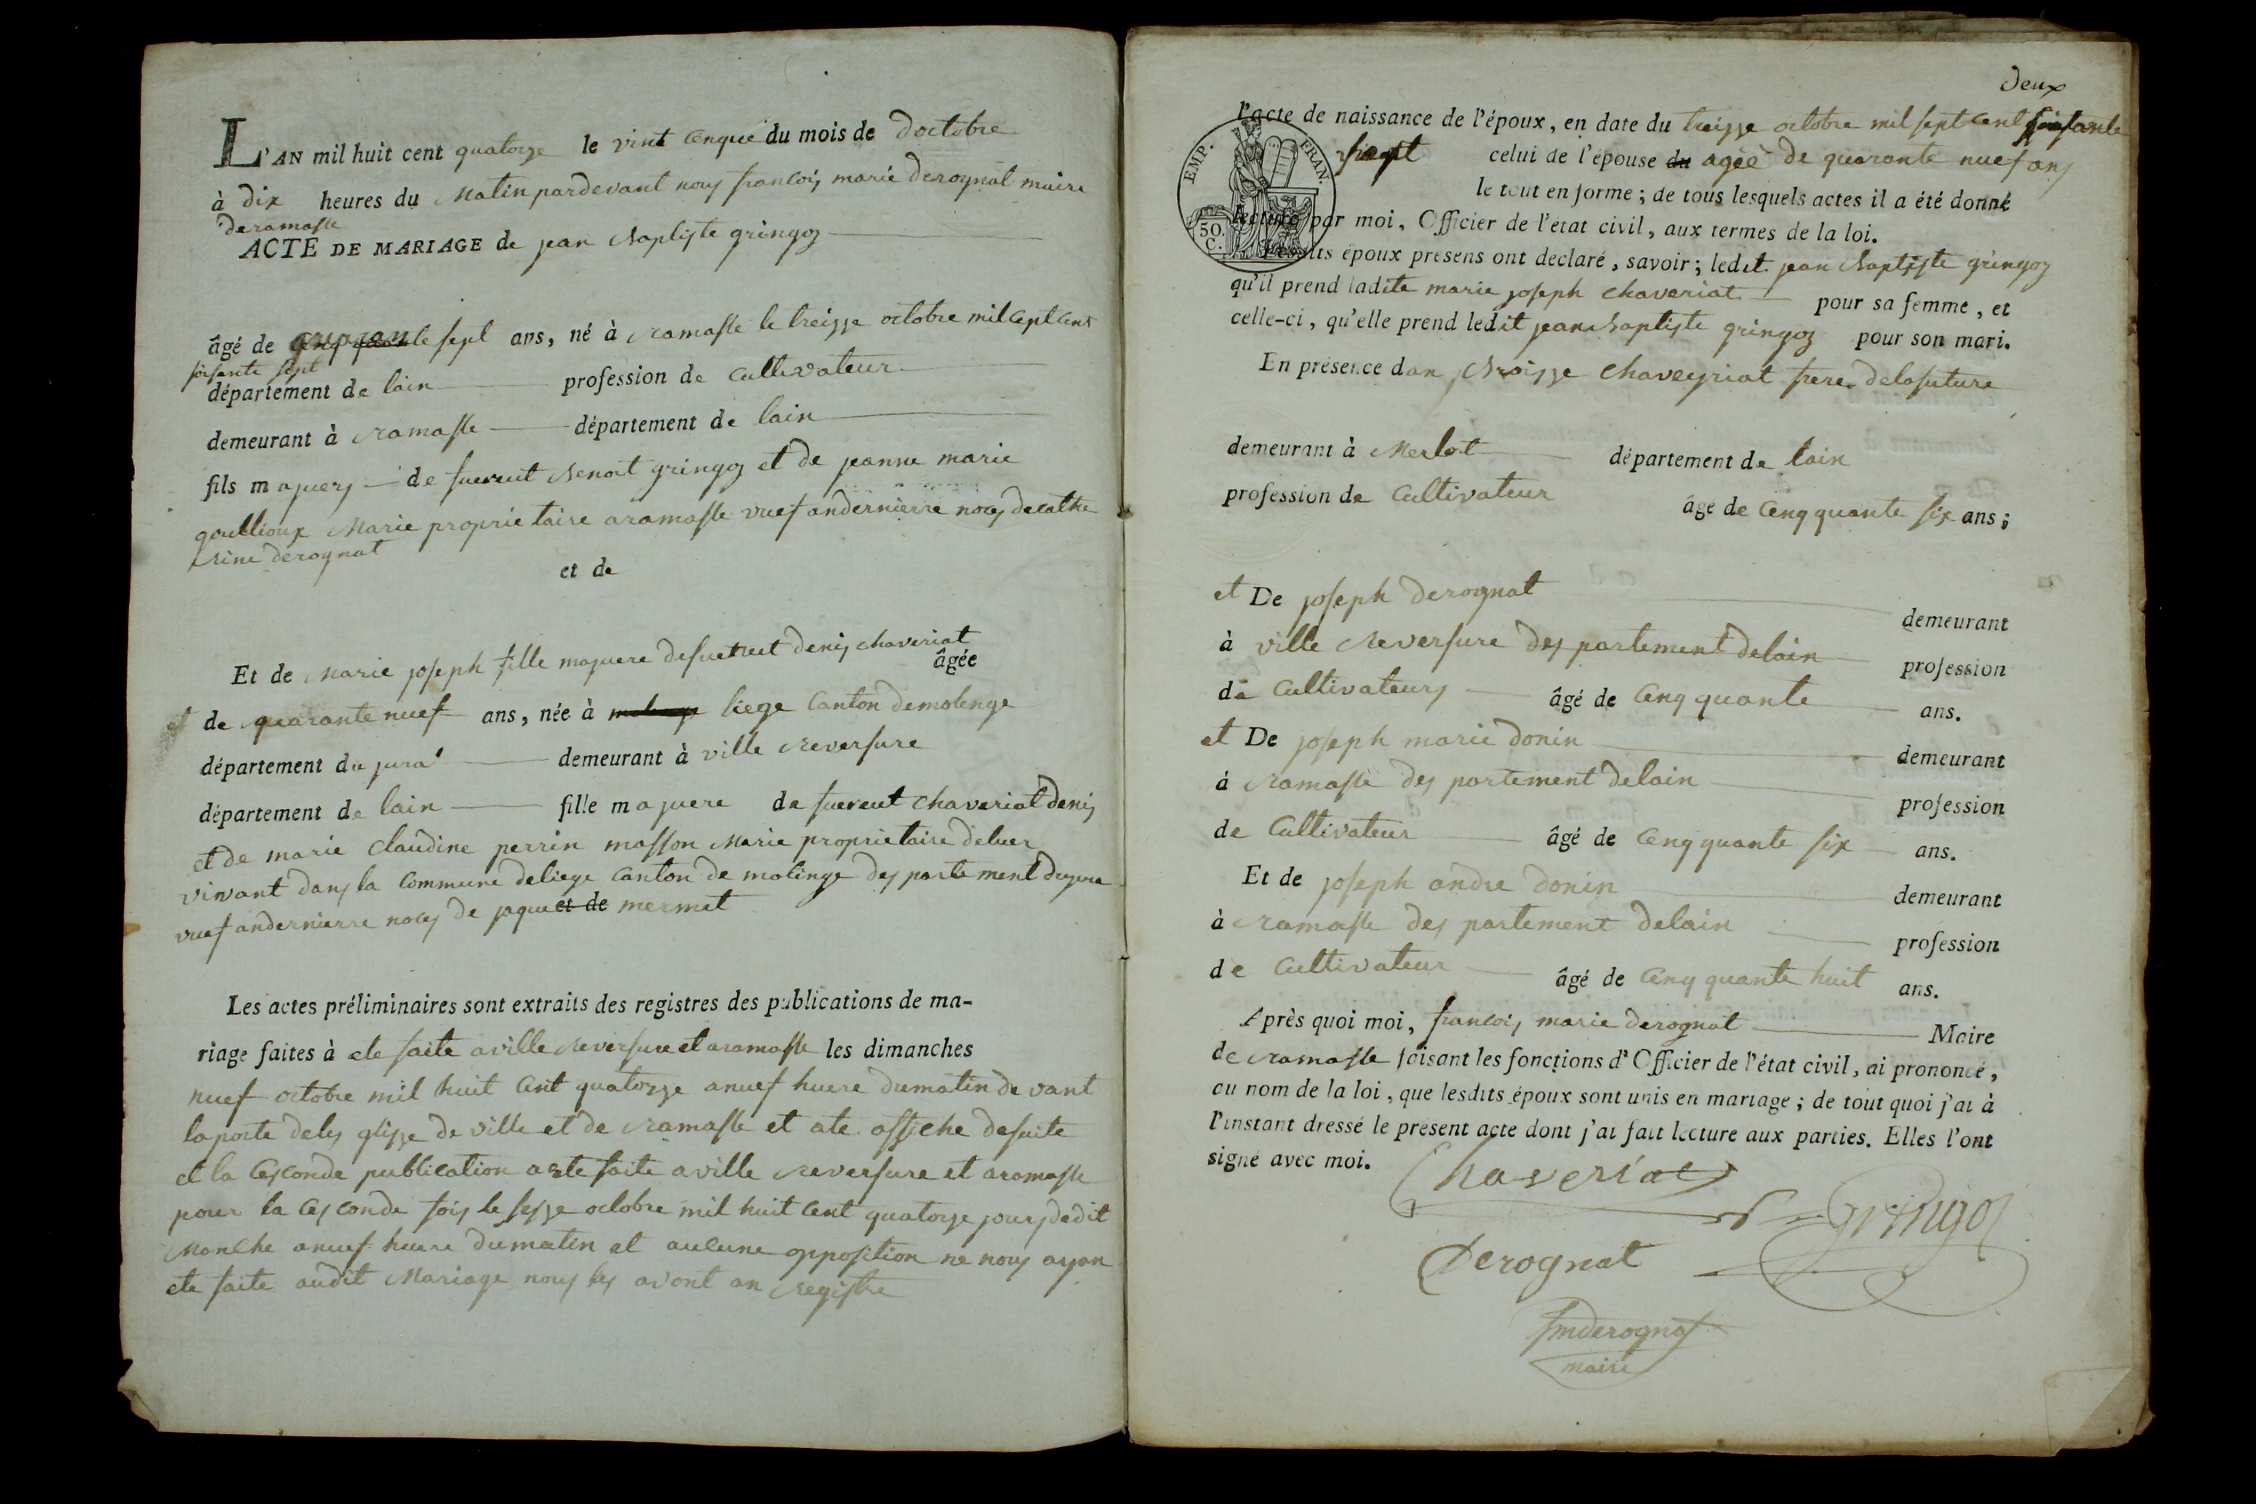 L'AN mil huit cent quatorze le vint cenquie du mois de doctobre
à dix heures du Matin pardevant nous francois marie derognat maire
deramasse
ACTE DE MARIAGE de jean Baptiste gringoz
âgé de quarante sept ans, né à ramasse le treizze octobre mil cept cent
soisente sept
département de lain profession de cultivateur
demeurant à ramasse département de lain
fils majuers de fueveut Benoit gringoz et de jeanne marie
goullioux Marie proprietaire aramasse vuef andernierre noces de cathe
rine derognat
et de
Et de Marie joseph fille majuere defuetveut denis chaveriat
âgée
et de quarante nuef ans, née à liege Canton demolenge
département du jura demeurant à ville Reversure
département de lain fille majuere de fueveut chaveriat denis
et de marie claudine perrin masson Marie proprietaire deluer
vivant dans la commune deliege Canton de molinge des partement dujura
vuef andernierre noces de jaque et de mermet
Les actes préliminaires sont extraits des registres des publications de ma-
riage faites à ete faite aville Reversure et aramasse les dimanches
nuef octobre mil huit Cent quatorzze anuef huere dumatin de vant
laporte deles glizze de ville et de ramasse et ate affiche desuite
et la Cesconde publication aete faite aville Reversure et aramasse
pour la Ces conde fois le sezze octobre mil huit Cent quatorze jours dedit
Manche anuef huere dumatin et aucune opposition ne nous ayan
ete faite audit Mariage nous les avont an Registre
deux
l'acte de naissance de l'époux, en date du treizze octobre mil sept cent soisante
sept celui de l'épouse du agée de quarante nuef ans
le tout en forme ; de tous lesquels actes il a été donné
EMP. FRAN.
50. C.
lecture par moi, Officier de l'état civil, aux termes de la loi.
Lesdits époux présens ont déclaré, savoir ; ledit jean Baptiste gringoz
qu'il prend ladite marie joseph chaveriat pour sa femme, et
celle-ci, qu'elle prend ledit jean Baptiste gringoz pour son mari.
En présence dan Broizze Chaveyriat frere delafuture
demeurant à Merlot département de lain
profession de Cultivateur âgé de Cenq quante six ans ;
et De joseph derognat demeurant
à ville Reversure des partement delain profession
de Cultivateurs âgé de Cenq quante ans.
et De joseph marie donin demeurant
à ramasse des partement delain profession
de Cultivateur âgé de Cenq quante six ans.
Et de joseph andre donin demeurant
à ramasse des partement delain profession
de Cultivateur âgé de Cenq quante huit ans.
Après quoi moi, francois marie derognat Maire
de ramasse faisant les fonctions d'Officier de l'état civil, ai prononcé,
au nom de la loi, que lesdits époux sont unis en mariage ; de tout quoi j'ai à
l'instant dressé le présent acte dont j'ai fait lecture aux parties. Elles l'ont
signé avec moi.
Chaveriat
gringoz
Derognat
fmderognat
maire